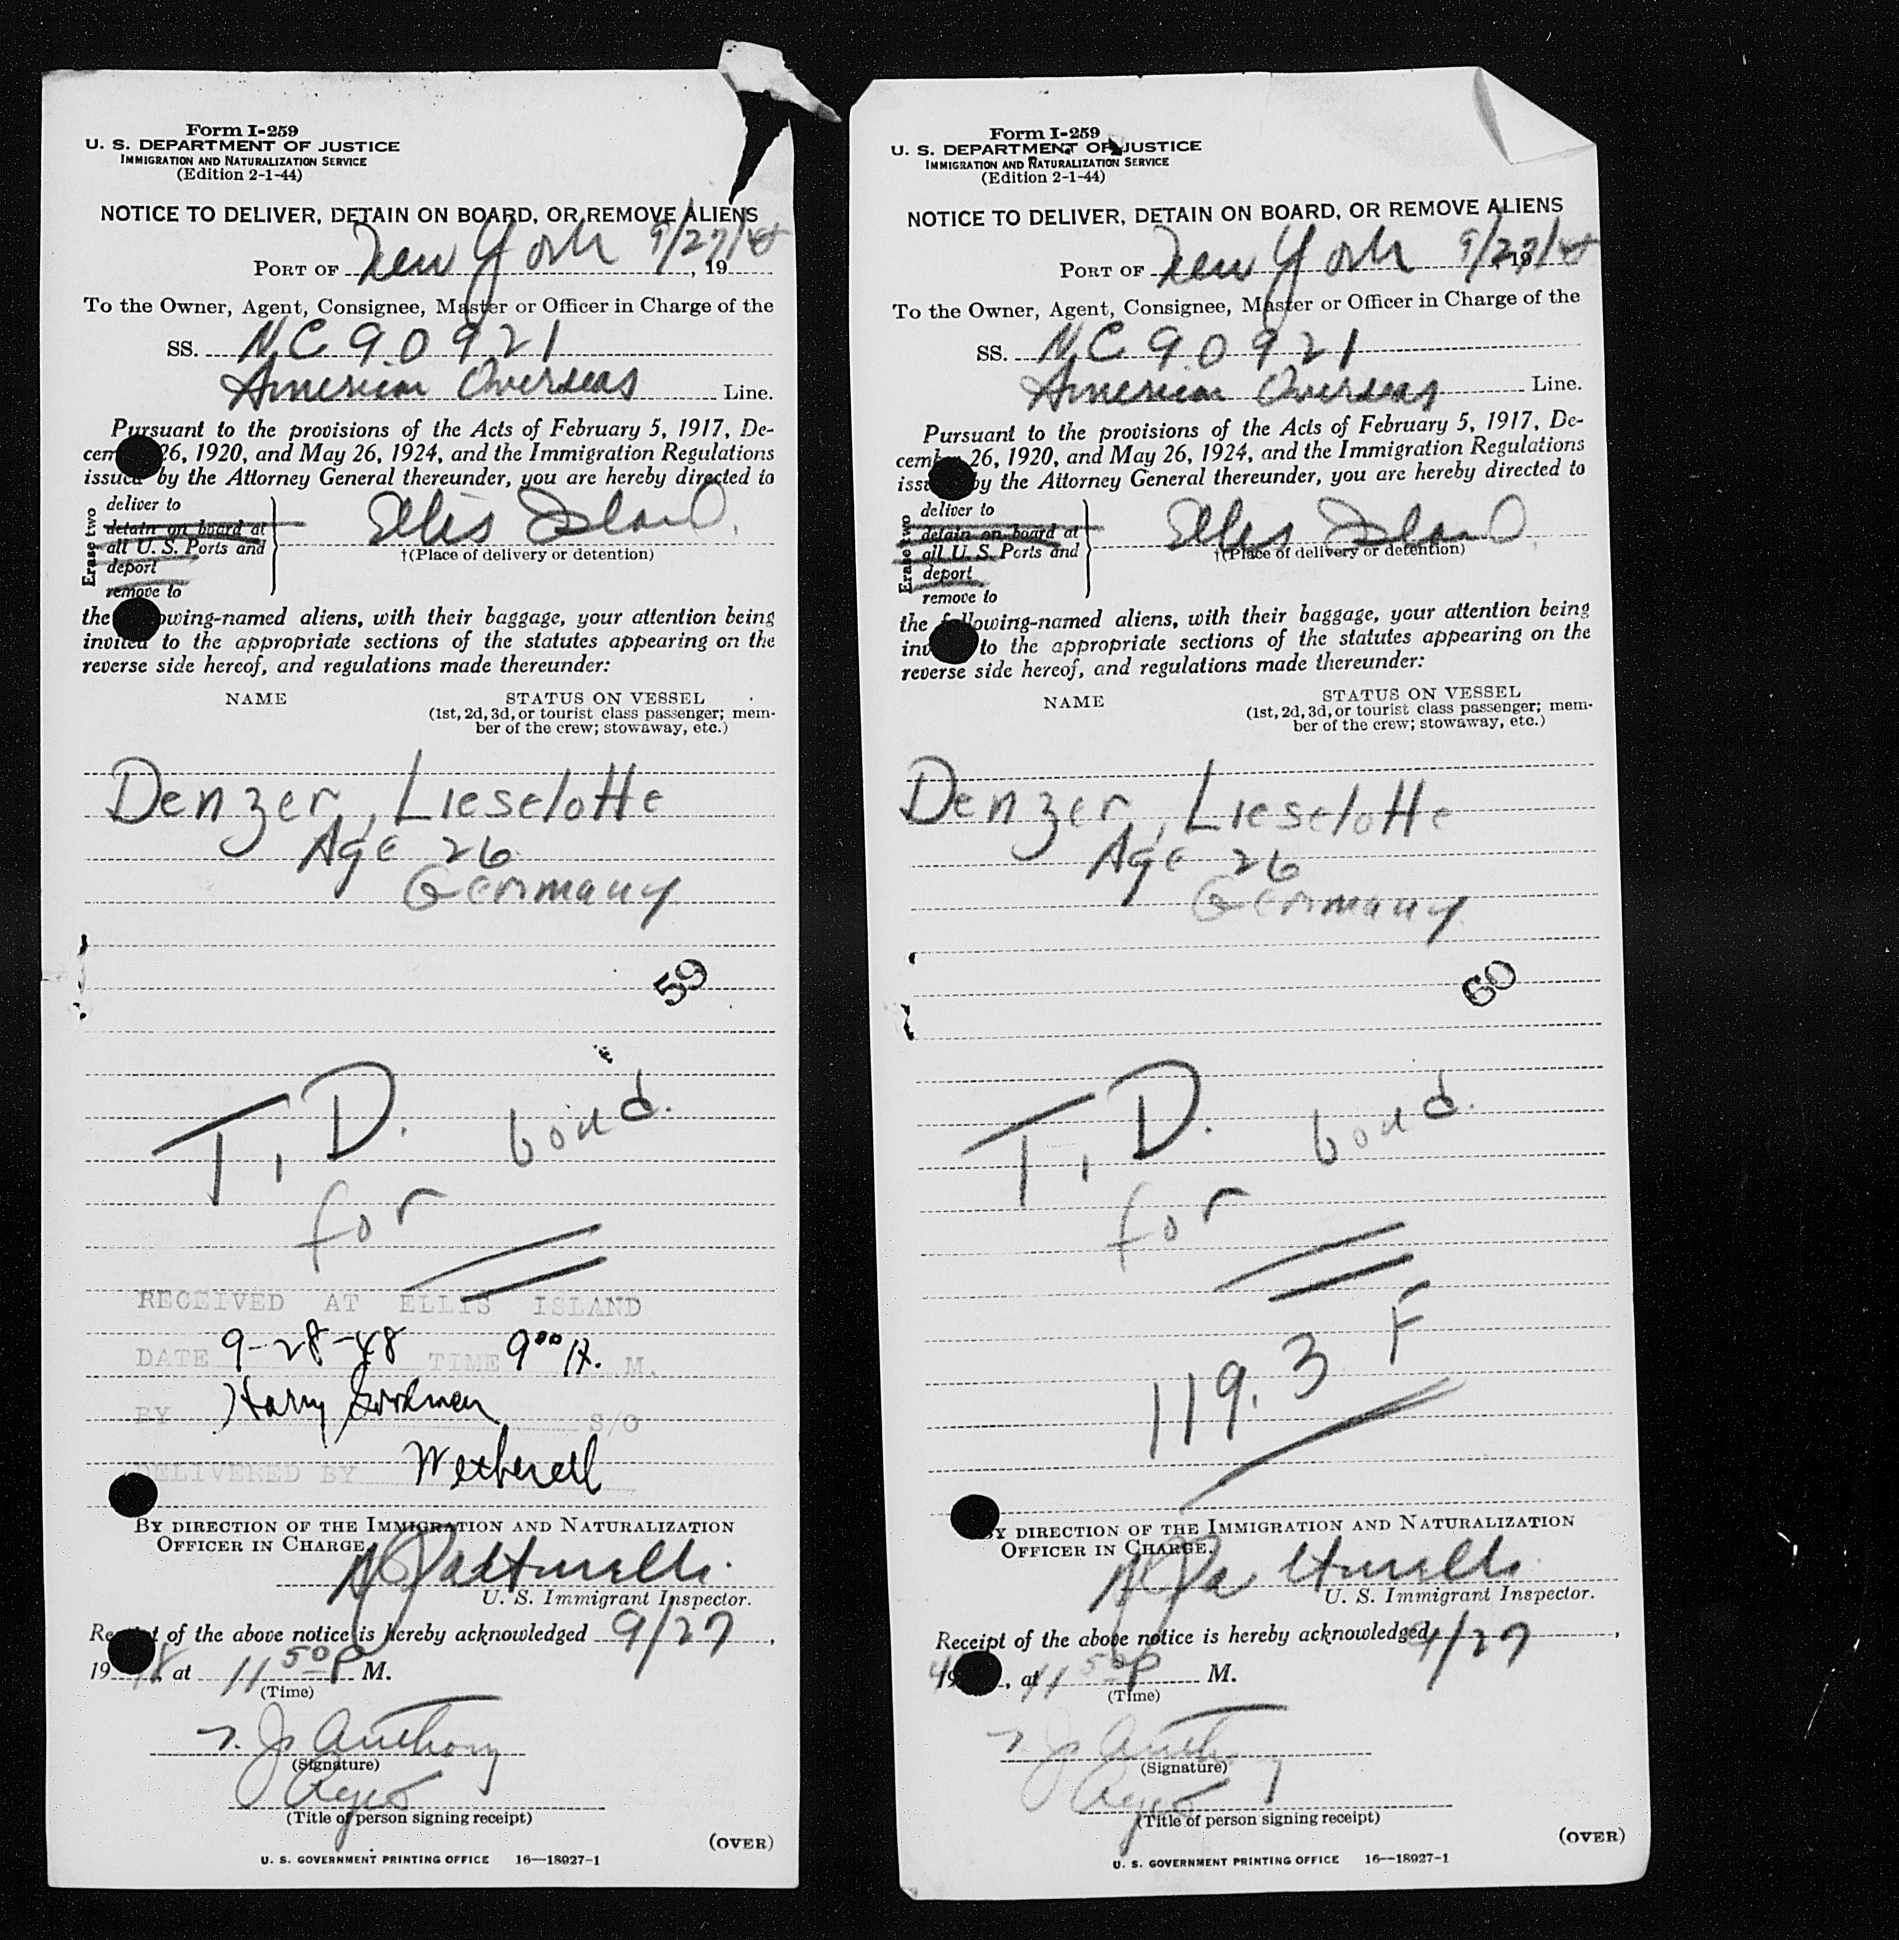 Form I-259
U. S. DEPARTMENT OF JUSTICE
IMMIGRATION AND NATURALIZATION SERVICE
(Edition 2-1-44)
NOTICE TO DELIVER, DETAIN ON BOARD, OR REMOVE ALIENS
PORT OF New York 9/27/48, 19
To the Owner, Agent, Consignee, Master or Officer in Charge of the
SS. NC 90921
American Overseas Line.
Pursuant to the provisions of the Acts of February 5, 1917, De-
cem 26, 1920, and May 26, 1924, and the Immigration Regulations
issued by the Attorney General thereunder, you are hereby directed to
Erase two
deliver to
detain on board at
all U. S. Ports and
deport
remove to
Ellis Island.
†(Place of delivery or detention)
the owing-named aliens, with their baggage, your attention being
invited to the appropriate sections of the statutes appearing on the
reverse side hereof, and regulations made thereunder:
NAME STATUS ON VESSEL
(1st, 2d, 3d, or tourist class passenger; mem-
ber of the crew; stowaway, etc.)
Denzer, Lieselotte
Age 26
Germany
59
T. D. bond.
for
RECEIVED AT ELLIS ISLAND
DATE 9-28-48 TIME 900 A. M.
BY Harry S/O
DELIVERED BY
BY DIRECTION OF THE IMMIGRATION AND NATURALIZATION
OFFICER IN CHARGE.
U. S. Immigrant Inspector.
Receipt of the above notice is hereby acknowledged 9/27,
19 48, at 11 50 P M.
(Time)
J. Anthony
(Signature)
(Title of person signing receipt)
(OVER)
U. S. GOVERNMENT PRINTING OFFICE 16—18927-1
Form I-259
U. S. DEPARTMENT OF JUSTICE
IMMIGRATION AND NATURALIZATION SERVICE
(Edition 2-1-44)
NOTICE TO DELIVER, DETAIN ON BOARD, OR REMOVE ALIENS
PORT OF New York 9/27/48, 19
To the Owner, Agent, Consignee, Master or Officer in Charge of the
SS. NC 90921
American Overseas Line.
Pursuant to the provisions of the Acts of February 5, 1917, De-
cember 26, 1920, and May 26, 1924, and the Immigration Regulations
iss by the Attorney General thereunder, you are hereby directed to
Erase two
deliver to
detain on board at
all U. S. Ports and
deport
remove to
Ellis Island.
†(Place of delivery or detention)
the following-named aliens, with their baggage, your attention being
inv to the appropriate sections of the statutes appearing on the
reverse side hereof, and regulations made thereunder:
NAME STATUS ON VESSEL
(1st, 2d, 3d, or tourist class passenger; mem-
ber of the crew; stowaway, etc.)
Denzer, Lieselotte
Age 26
Germany
60
T. D. bond.
for
119.3 F
BY DIRECTION OF THE IMMIGRATION AND NATURALIZATION
OFFICER IN CHARGE.
U. S. Immigrant Inspector.
Receipt of the above notice is hereby acknowledged 9/27,
19, at 11 50 P M.
(Time)
J. Anthony
(Signature)
(Title of person signing receipt)
(OVER)
U. S. GOVERNMENT PRINTING OFFICE 16—18927-1